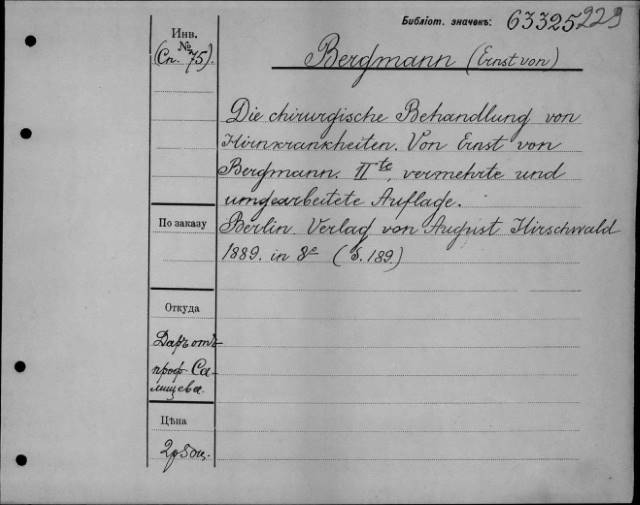 Библіот. значекъ: 63325229
Инв.
№
(Сп. 75).
Bergmann (Ernst von)
Die chirurgische Behandlung von
Hirnkrankheiten. Von Ernst von
Bergmann. II te, vermehrte und
umgearbeitete Auflage.
По заказу
Berlin. Verlag von August Hirschwald
1889. in 8º (S. 189.)
Откуда
Даръ отъ
проф. Са-
лищева.
Цѣна
2р 50